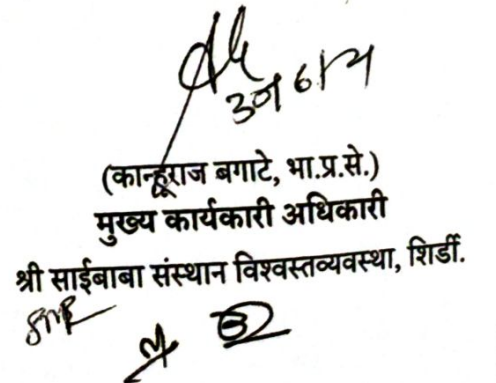 (कान्हूराज बगाटे, भा.प्र.से.)
मुख्य कार्यकारी अधिकारी
श्री साईबाबा संस्थान विश्वस्तव्यवस्था, शिर्डी.